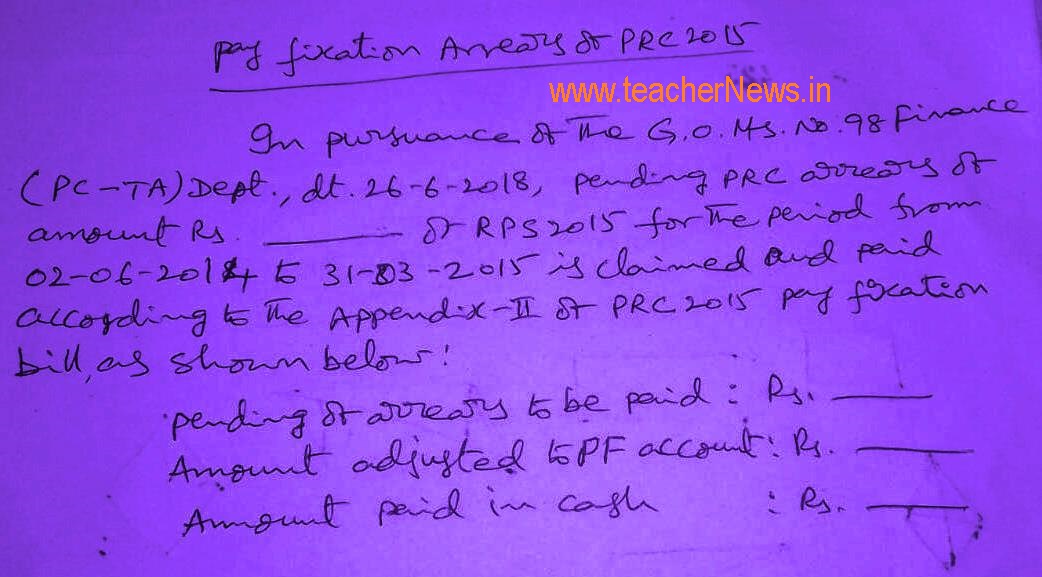 pay fixation Arrears of PRC 2015
www.teacherNews.in
In pursuance of The G.O.Ms.No.98 Finance
(PC-TA) Dept., dt. 26-6-2018, pending PRC arrears of
amount Rs. ______ of RPS 2015 for The period from
02-06-2014 to 31-03-2015 is claimed and paid
according to the Appendix-II of PRC 2015 pay fixation
bill, as shown below:
pending of arrears to be paid : Rs. ______
Amount adjusted to PF account : Rs. ______
Amount paid in cash : Rs. ______